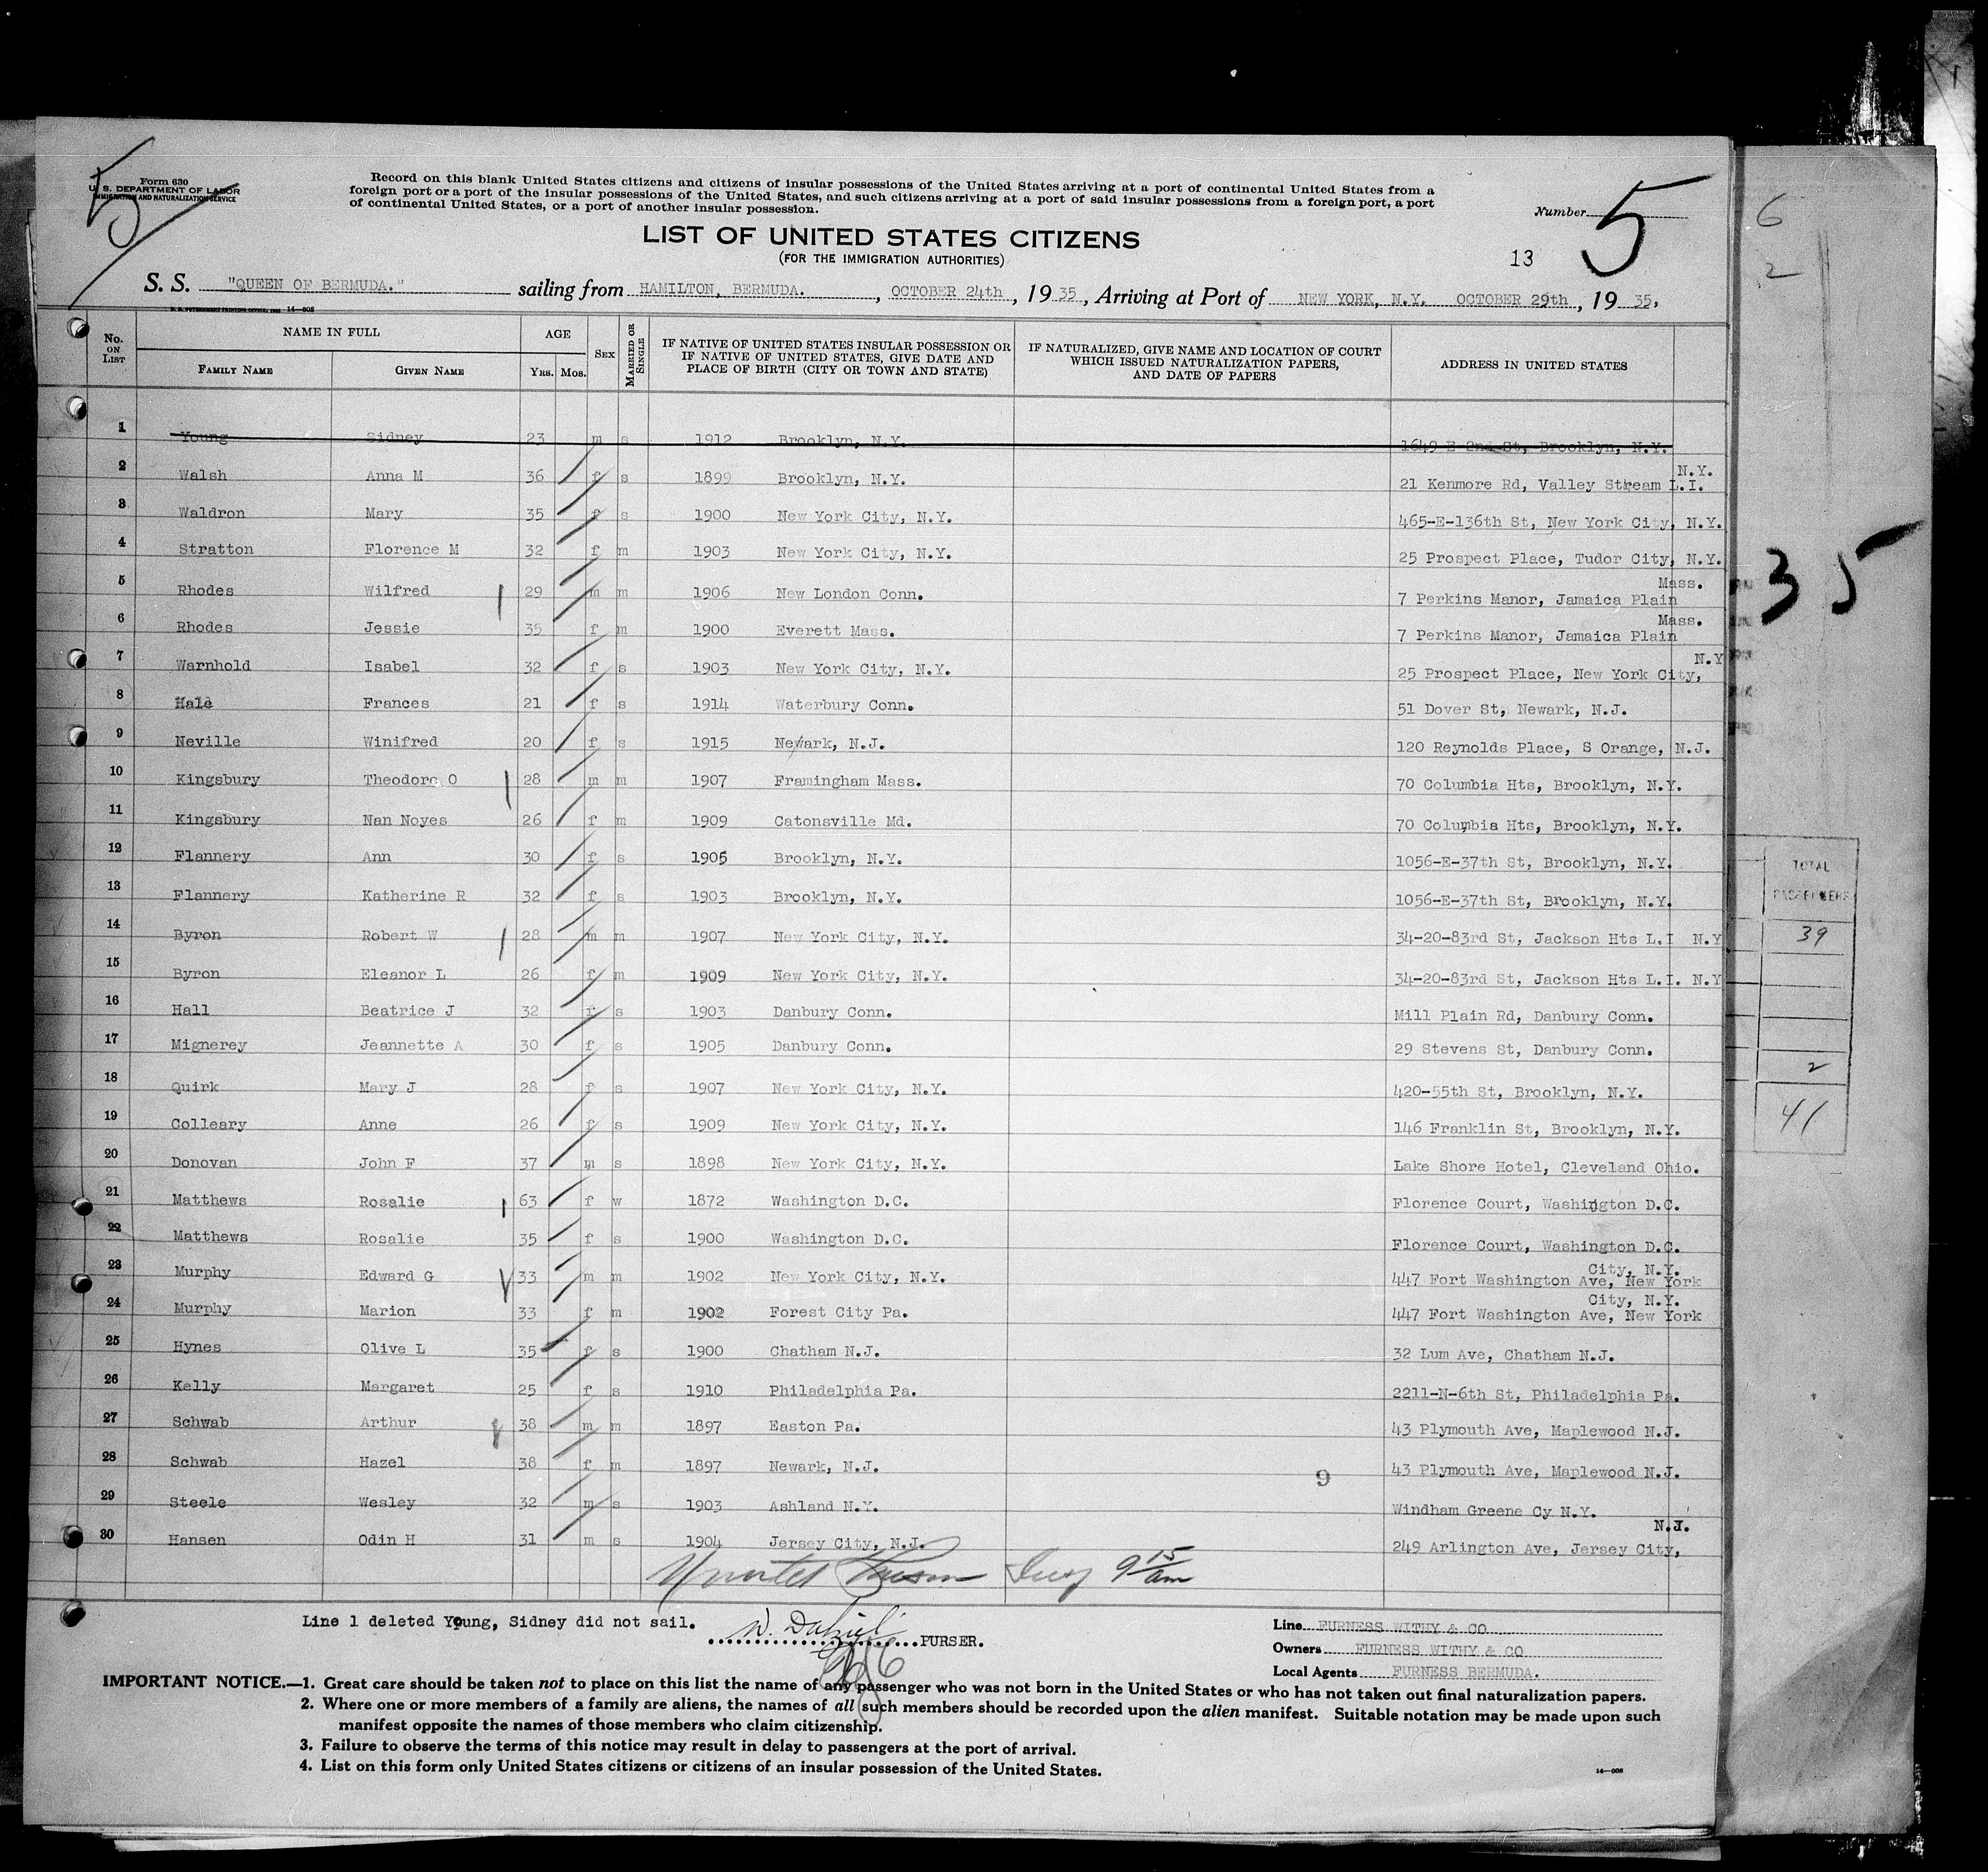 5
Form 630
U. S. DEPARTMENT OF LABOR
IMMIGRATION AND NATURALIZATION SERVICE
Record on this blank United States citizens and citizens of insular possessions of the United States arriving at a port of continental United States from a
foreign port or a port of the insular possessions of the United States, and such citizens arriving at a port of said insular possessions from a foreign port, a port
of continental United States, or a port of another insular possession.
Number 5
LIST OF UNITED STATES CITIZENS
(FOR THE IMMIGRATION AUTHORITIES)
13
S. S. "QUEEN OF BERMUDA." sailing from HAMILTON, BERMUDA. , OCTOBER 24th , 19 35 , Arriving at Port of NEW YORK, N.Y. OCTOBER 29th , 19 35,
14—608
No. ON LIST NAME IN FULL AGE SEX MARRIED OR SINGLE IF NATIVE OF UNITED STATES INSULAR POSSESSION OR IF NATIVE OF UNITED STATES, GIVE DATE AND PLACE OF BIRTH (CITY OR TOWN AND STATE) IF NATURALIZED, GIVE NAME AND LOCATION OF COURT WHICH ISSUED NATURALIZATION PAPERS, AND DATE OF PAPERS ADDRESS IN UNITED STATES
FAMILY NAME GIVEN NAME YRS. MOS.
1 Young Sidney 23 m s 1912 Brooklyn, N.Y. 1649 E 2nd St, Brooklyn, N.Y.
2 Walsh Anna M 36 f s 1899 Brooklyn, N.Y. 21 Kenmore Rd, Valley Stream L.I. N.Y.
3 Waldron Mary 35 f s 1900 New York City, N.Y. 465-E-136th St, New York City, N.Y.
4 Stratton Florence M 32 f m 1903 New York City, N.Y. 25 Prospect Place, Tudor City, N.Y.
5 Rhodes Wilfred 29 m m 1906 New London Conn. 7 Perkins Manor, Jamaica Plain Mass.
6 Rhodes Jessie 35 f m 1900 Everett Mass. 7 Perkins Manor, Jamaica Plain Mass.
7 Warnhold Isabel 32 f s 1903 New York City, N.Y. 25 Prospect Place, New York City, N.Y
8 Hale Frances 21 f s 1914 Waterbury Conn. 51 Dover St, Newark, N.J.
9 Neville Winifred 20 f s 1915 Newark, N.J. 120 Reynolds Place, S Orange, N.J.
10 Kingsbury Theodore O 28 m m 1907 Framingham Mass. 70 Columbia Hts, Brooklyn, N.Y.
11 Kingsbury Nan Noyes 26 f m 1909 Catonsville Md. 70 Columbia Hts, Brooklyn, N.Y.
12 Flannery Ann 30 f s 1905 Brooklyn, N.Y. 1056-E-37th St, Brooklyn, N.Y.
13 Flannery Katherine R 32 f s 1903 Brooklyn, N.Y. 1056-E-37th St, Brooklyn, N.Y.
14 Byron Robert W 28 m m 1907 New York City, N.Y. 34-20-83rd St, Jackson Hts L.I N.Y
15 Byron Eleanor L 26 f m 1909 New York City, N.Y. 34-20-83rd St, Jackson Hts L.I. N.Y
16 Hall Beatrice J 32 f s 1903 Danbury Conn. Mill Plain Rd, Danbury Conn.
17 Mignerey Jeannette A 30 f s 1905 Danbury Conn. 29 Stevens St, Danbury Conn.
18 Quirk Mary J 28 f s 1907 New York City, N.Y. 420-55th St, Brooklyn, N.Y.
19 Colleary Anne 26 f s 1909 New York City, N.Y. 146 Franklin St, Brooklyn, N.Y.
20 Donovan John F 37 m s 1898 New York City, N.Y. Lake Shore Hotel, Cleveland Ohio.
21 Matthews Rosalie 63 f w 1872 Washington D.C. Florence Court, Washington D.C.
22 Matthews Rosalie 35 f s 1900 Washington D.C. Florence Court, Washington D.C.
23 Murphy Edward G 33 m m 1902 New York City, N.Y. 447 Fort Washington Ave, New York City, N.Y.
24 Murphy Marion 33 f m 1902 Forest City Pa. 447 Fort Washington Ave, New York City, N.Y.
25 Hynes Olive L 35 f s 1900 Chatham N.J. 32 Lum Ave, Chatham N.J.
26 Kelly Margaret 25 f s 1910 Philadelphia Pa. 2211-N-6th St, Philadelphia Pa.
27 Schwab Arthur 38 m m 1897 Easton Pa. 43 Plymouth Ave, Maplewood N.J.
28 Schwab Hazel 38 f m 1897 Newark, N.J. 43 Plymouth Ave, Maplewood N.J.
9
29 Steele Wesley 32 m s 1903 Ashland N.Y. Windham Greene Cy N.Y.
30 Hansen Odin H 31 m s 1904 Jersey City, N.J. 249 Arlington Ave, Jersey City, N.J.
9 15 am
Line 1 deleted Young, Sidney did not sail. PURSER.
Line FURNESS WITHY & CO
Owners FURNESS WITHY & CO
Local Agents FURNESS BERMUDA.
IMPORTANT NOTICE.—1. Great care should be taken not to place on this list the name of any passenger who was not born in the United States or who has not taken out final naturalization papers.
2. Where one or more members of a family are aliens, the names of all such members should be recorded upon the alien manifest. Suitable notation may be made upon such
manifest opposite the names of those members who claim citizenship.
3. Failure to observe the terms of this notice may result in delay to passengers at the port of arrival.
4. List on this form only United States citizens or citizens of an insular possession of the United States.
14—608
6
2
35
TOTAL
PASSENGERS
39
2
41